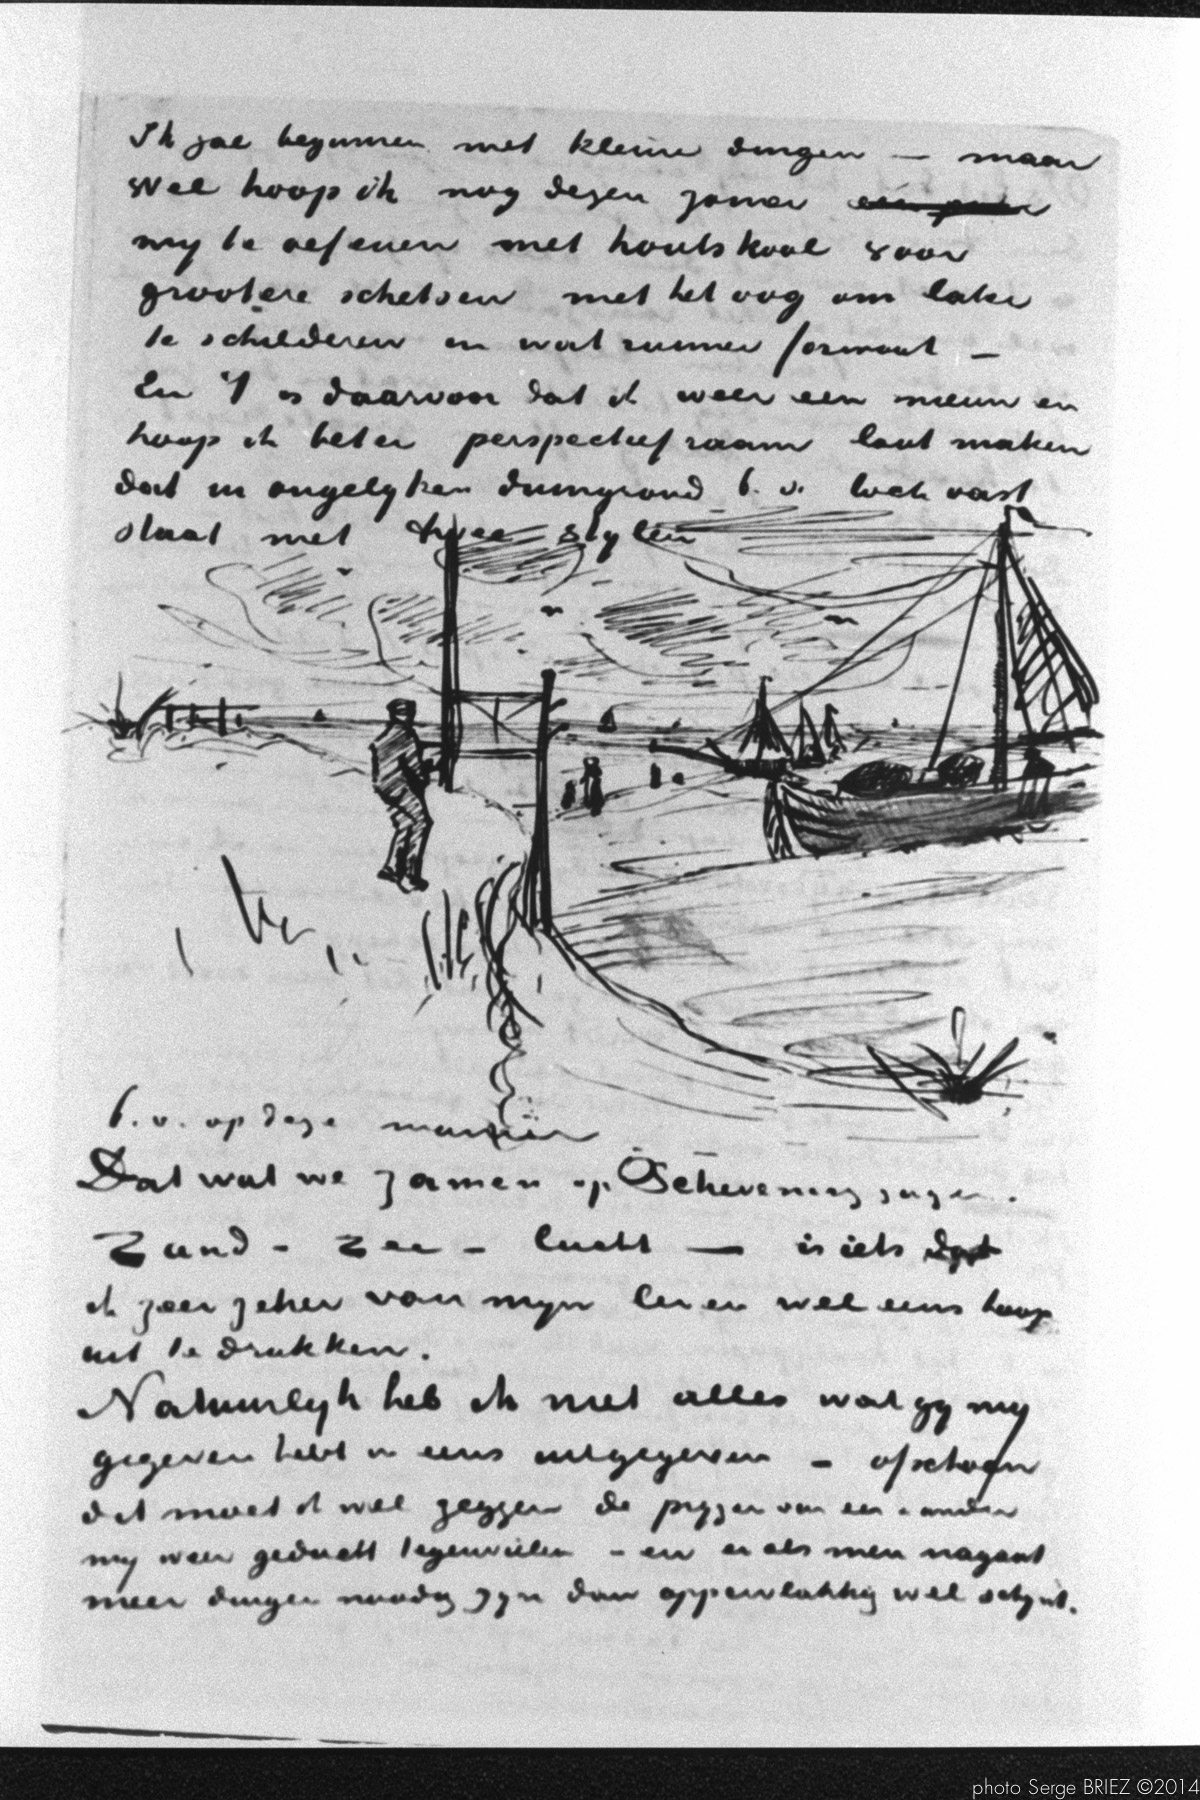 Ik zal beginnen met kleine dingen — maar
wel hoop ik nog dezen zomer
my te oefenen met houtskool voor
grootere schetsen met het oog om later
te schilderen in wat ruimer formaat —
En 't is daarvoor dat ik weer een nieuw en
hoop ik beter perspectiefraam laat maken
dat in ongelyken duingrond b.v. toch vast
staat met twee stylen
b.v. op deze manier
Dat wat we zamen op Schevening zagen.
Zand - Zee - lucht — is iets dat
ik zeer zeker van myn leven wel eens hoop
uit te drukken.
Natuurlyk heb ik niet alles wat gy my
gegeven hebt in eens uitgegeven — ofschoon
dit moet ik wel zeggen de pryzen van een & ander
my weer geducht tegenvielen - en er als men nagaat
meer dingen noodig zyn dan oppervlakkig wel schynt.
photo Serge BRIEZ ©2014